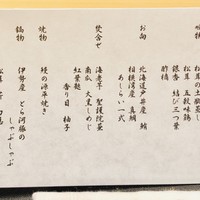 松茸の土瓶蒸し
松茸 五数味鶏
銀杏 結び三つ葉
酢橘
お向
北海道戸井産 鮪
相模湾産 真鯛
あしらい一式
焚合せ
海老芋 聖護院蕪
南瓜 大黒しめじ
紅葉麩
香り目 柚子
焼物
鰻の源平焼き
鍋物
伊勢産 とら河豚の
しゃぶしゃぶ